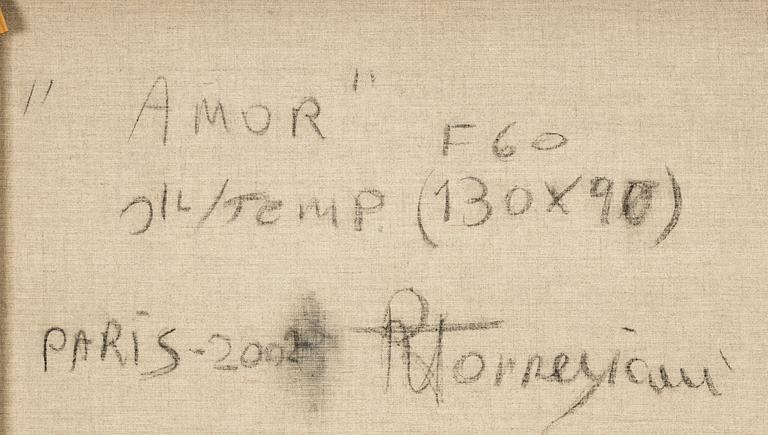 " AMOR "
F60
oil/TEMP (130X97)
PARIS-2002 Torregiani